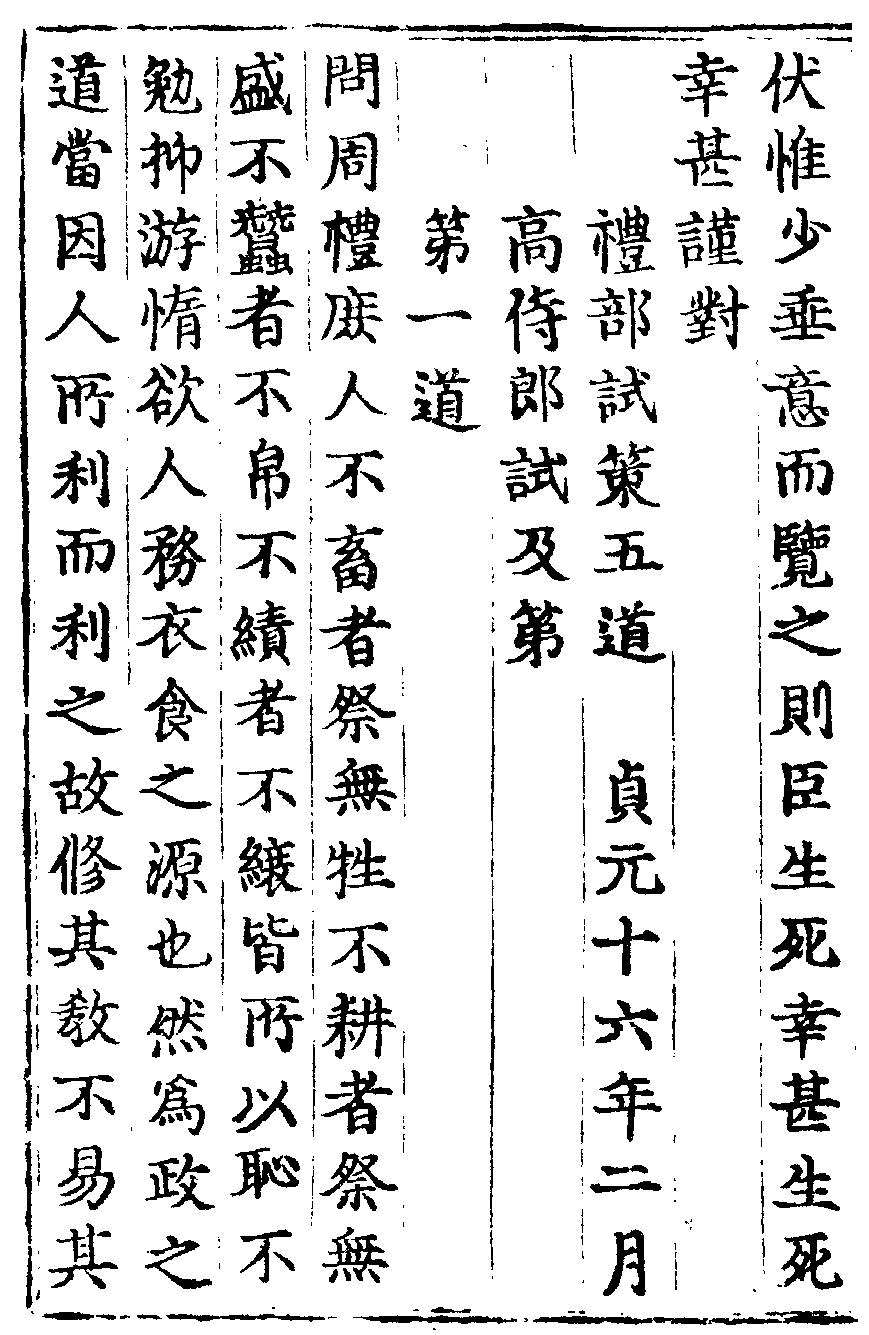 伏惟少垂意而覽之則臣生死幸甚生死
幸甚謹對
禮部試策五道　貞元十六年二月
高侍郎試及第
第一道
問周禮庶人不畜者祭無牲不耕者祭無
盛不蠶者不帛不績者不縗皆所以恥不
勉抑游惰欲人務衣食之源也然爲政之
道當因人所利而利之故修其教不易其